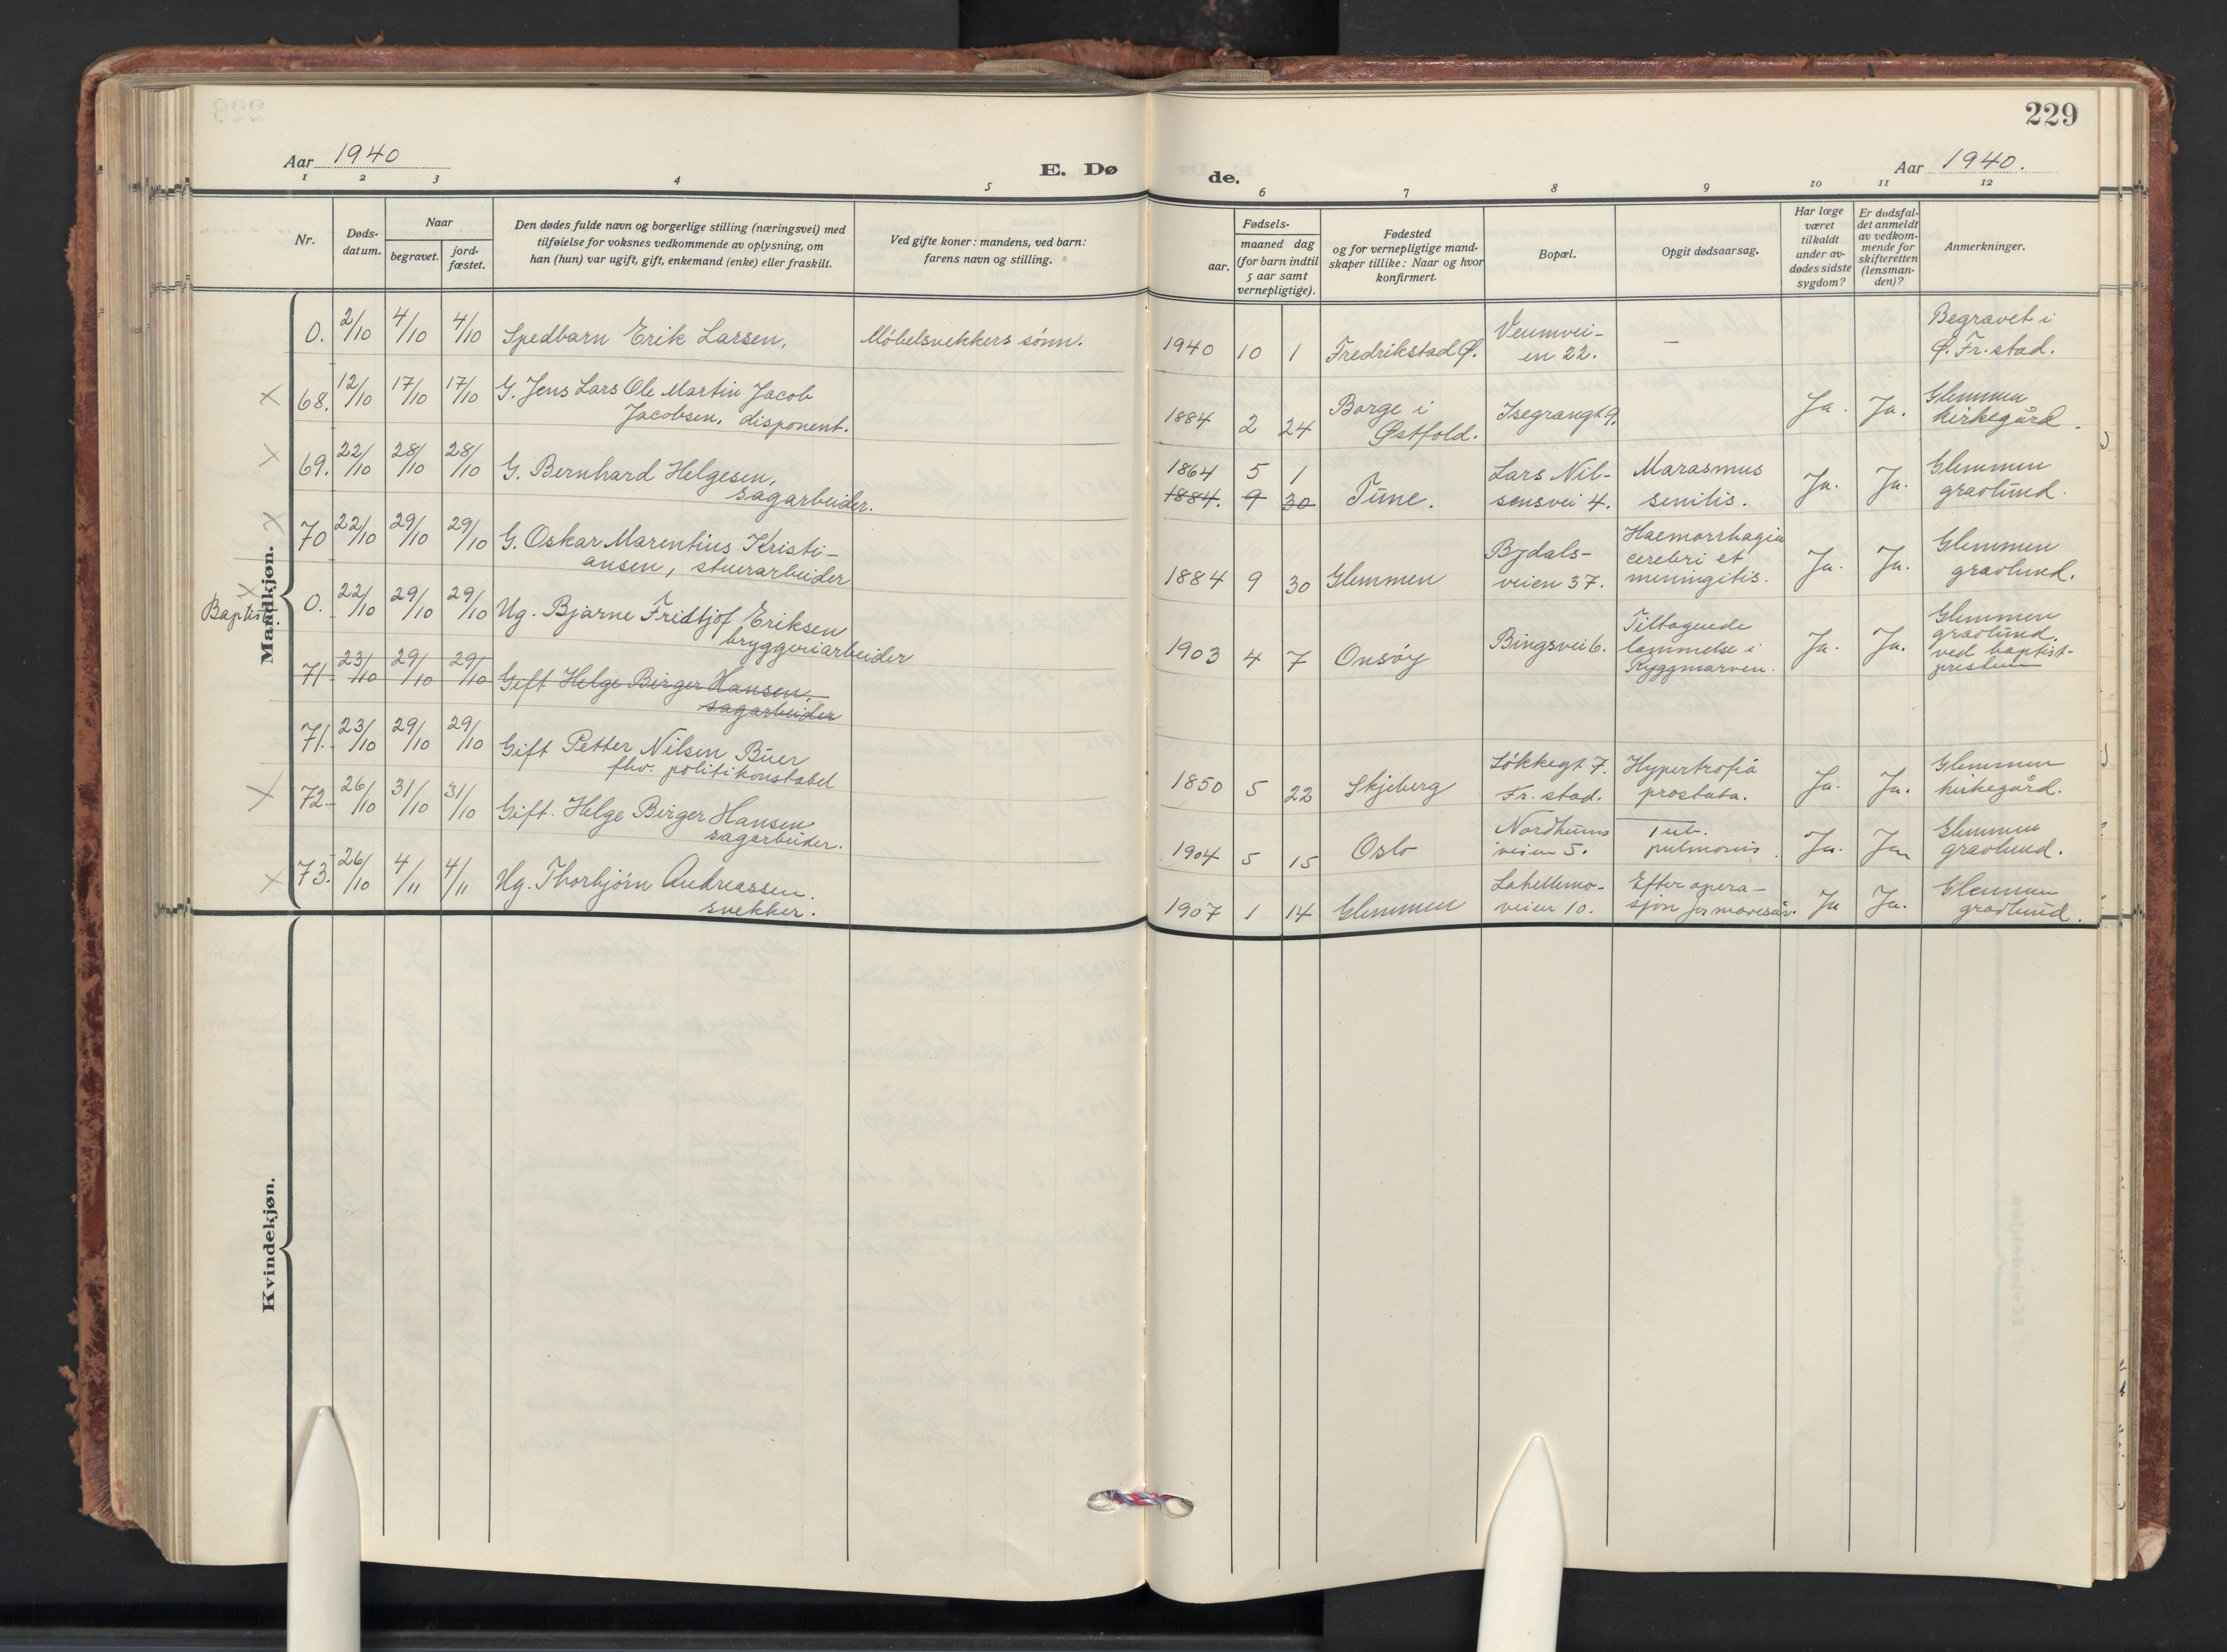 229
Aar 1940
E. Dø
de.
Aar 1940.
1 2 3 4 5 6 7 8 9 10 11 12
Nr.
Døds-
datum.
Naar
begravet.
jord-
fæstet.
Den dødes fulde navn og borgerlige stilling (næringsvei) med
tilføielse for voksnes vedkommende av oplysning, om
han (hun) var ugift, gift, enkemand (enke) eller fraskilt.
Ved gifte koner: mandens, ved barn:
farens navn og stilling.
Fødsels-
aar.
maaned dag
(for barn indtil
5 aar samt
vernepligtige).
Fødested
og for vernepligtige mand-
skaper tillike: Naar og hvor
konfirmert.
Bopæl.
Opgit dødsaarsag.
Har læge
været
tilkaldt
under av-
dødes sidste
sygdom?
Er dødsfal-
det anmeldt
av vedkom-
mende for
skifteretten
(lensman-
den)?
Anmerkninger.
Mandkjøn.
0. 2/10 4/10 4/10 Spedbarn Erik Larsen, Møbelsnekkers sønn. 1940 10 1 Fredrikstad Ø. Veumvei- — Begravet i
en 22. Ø. Fr.stad.
x 68. 12/10 17/10 17/10 G. Jens Lars Ole Martin Jacob 1884 2 24 Borge i Isegrangt. 9. Ja. Ja. Glemmen
Jacobsen, disponent. Østfold. kirkegård.
x 69. 22/10 28/10 28/10 G. Bernhard Helgesen, 1864 5 1 Tune. Lars Nil- Marasmus Ja. Ja. Glemmen
sagarbeider. 1884. 9 30 sensvei 4. senilis. gravlund.
x 70 22/10 29/10 29/10 G. Oskar Marentius Kristi- 1884 9 30 Glemmen Bydals- Haemorrhagia Ja. Ja. Glemmen
ansen, stuerarbeider veien 37. cerebri et gravlund.
meningitis.
x Baptist. 0. 22/10 29/10 29/10 Ug. Bjarne Fridtjof Eriksen 1903 4 7 Onsøy Bingsvei 6. Tiltagende Ja. Ja. Glemmen
bryggeriarbeider lammelse i gravlund.
Ryggmarven. ved baptist-
presten
71 23/10 29/10 29/10 Gift Helge Birger Hansen,
sagarbeider
71. 23/10 29/10 29/10 Gift Petter Nilsen Buer 1850 5 22 Skjeberg Løkkegt 7. Hypertrofia Ja. Ja. Glemmen
fhv. politikonstabel Fr. stad. prostata. kirkegård.
x 72. 26/10 31/10 31/10 Gift. Helge Birger Hansen 1904 5 15 Oslo Nordheims Tub. Ja. Ja Glemmen
sagarbeider. veien 5. pulmonis. gravlund.
x 73. 26/10 4/11 4/11 Ug. Thorbjørn Andreassen. 1907 1 14 Glemmen Lahellemo- Efter opera- Ja Ja. Glemmen
snekker. veien 10. sjon for mavesår. gravlund.
Kvindekjøn.